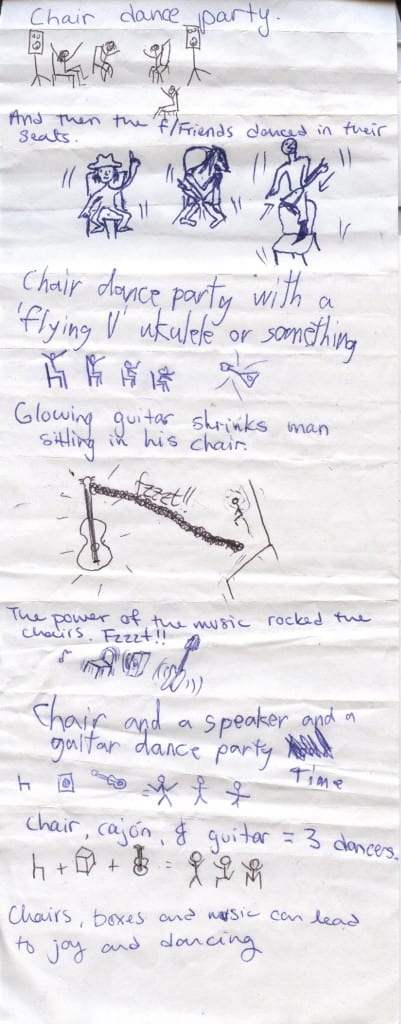 Chair dance party.
And then the f/Friends danced in their
seats.
Chair dance party with a
'flying V' ukulele or something
Glowing guitar shrinks man
sitting in his chair.
fzzzt!!
The power of the music rocked the
chairs. Fzzzt!!
Chair and a speaker and a
guitar dance party
Time
Chair, cajón, & guitar = 3 dancers.
+ + =
Chairs, boxes and music can lead
to joy and dancing